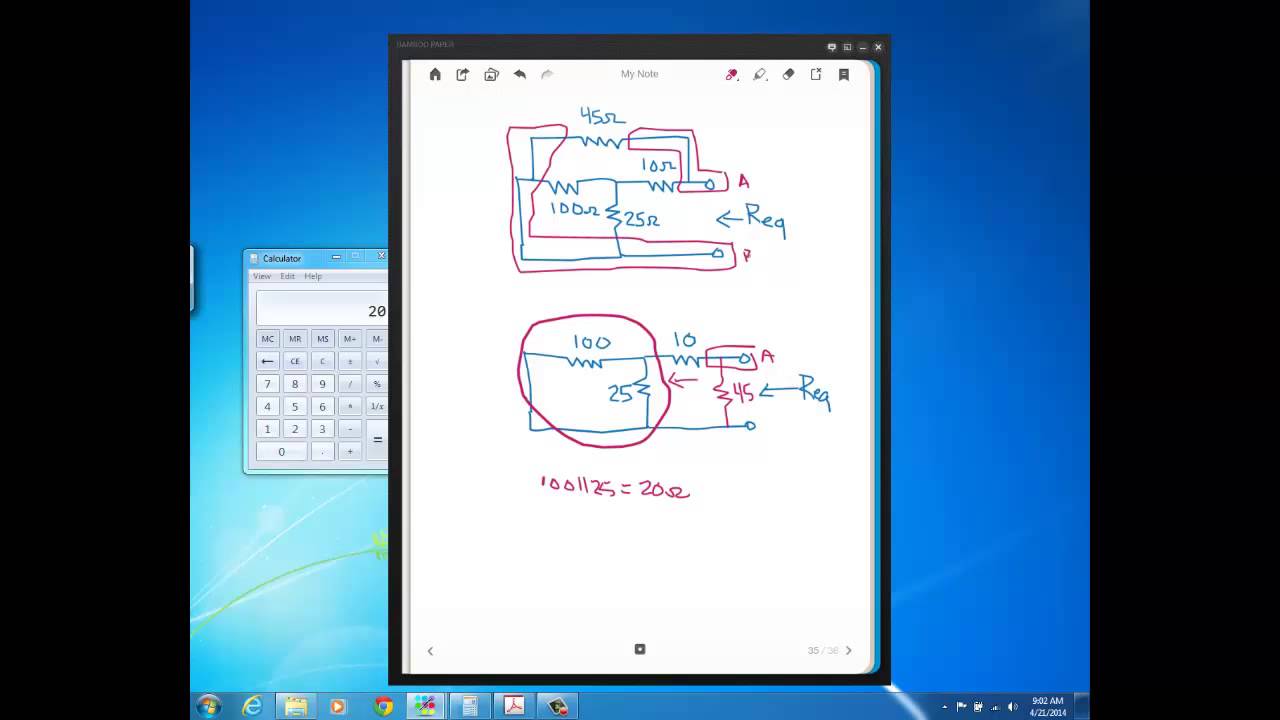 BAMBOO PAPER
My Note
45Ω
10Ω
A
100Ω
25Ω
← Req
Calculator
View Edit Help
20
MC MR MS M+ M-
← CE C ± √
7 8 9 / %
4 5 6 * 1/x
1 2 3 - =
0 . +
100
10
A
25
45
← Req
100||25 = 20Ω
35 / 36
9:02 AM
4/21/2014